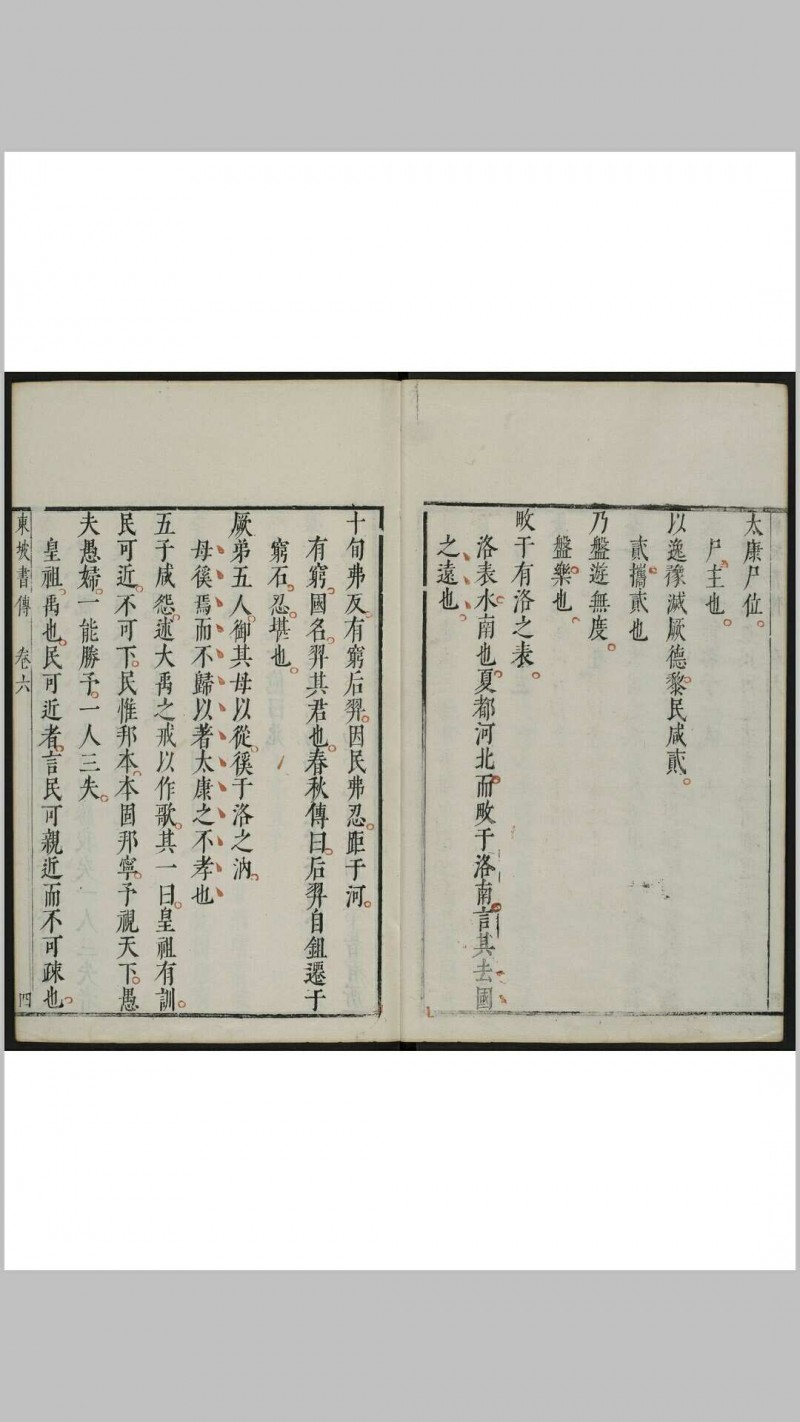 太康尸位
尸主也
以逸豫滅厥德黎民咸貳
貳攜貳也
乃盤遊無度
盤樂也
畋于有洛之表
洛表水南也夏都河北而畋于洛南言其去國
之遠也
十旬弗反有窮后羿因民弗忍距于河
有窮國名羿其君也春秋傳曰后羿自鉏遷于
窮石忍堪也
厥弟五人御其母以從徯于洛之汭
母徯焉而不歸以著太康之不孝也
五子咸怨述大禹之戒以作歌其一曰皇祖有訓
民可近不可下民惟邦本本固邦寧予視天下愚
夫愚婦一能勝予一人三失
皇祖禹也民可近者言民可親近而不可疎也
東坡書傳 卷六 四